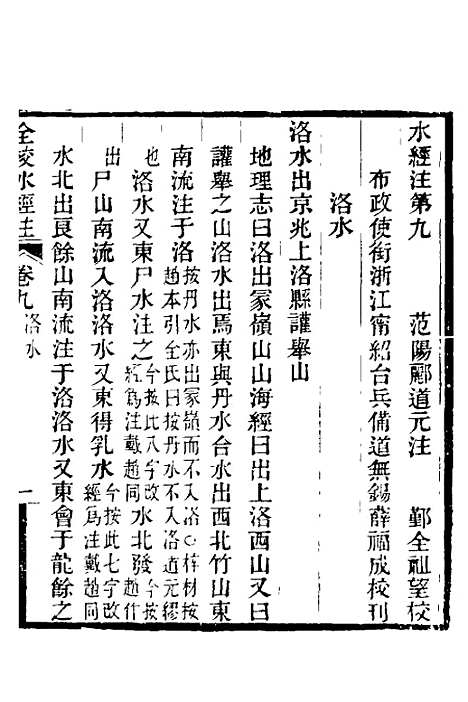 水經注第九　范陽酈道元注　鄞全祖望校
布政使銜浙江甯紹台兵備道無錫薛福成校刊
洛水
洛水出京兆上洛縣讙舉山
地理志曰洛出冢嶺山山海經曰出上洛西山又曰
讙舉之山洛水出焉東與丹水合水出西北竹山東
南流注于洛按丹水亦出冢嶺而不入洛○梓材按趙本引全氏曰按丹水不入洛道元繆
也洛水又東尸水注之今按此八字改經爲注戴趙同水北發今按趙作
出尸山南流入洛洛水又東得乳水今按此七字改經爲注戴趙同
水北出良餘山南流注于洛洛水又東會于龍餘之
全校水經注　卷九　洛水　一